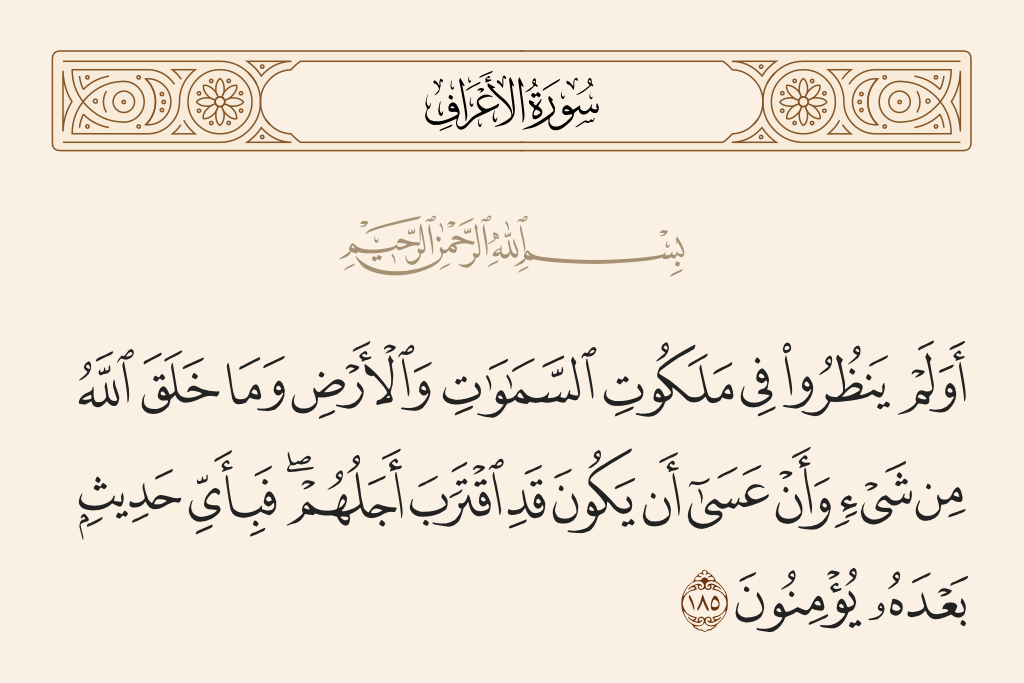 سُورَةُ الأَعْرَافِ
بِسْمِ ٱللَّهِ ٱلرَّحْمَٰنِ ٱلرَّحِيمِ
أَوَلَمْ يَنظُرُوا۟ فِى مَلَكُوتِ ٱلسَّمَٰوَٰتِ وَٱلْأَرْضِ وَمَا خَلَقَ ٱللَّهُ
مِن شَىْءٍ وَأَنْ عَسَىٰٓ أَن يَكُونَ قَدِ ٱقْتَرَبَ أَجَلُهُمْ ۖ فَبِأَىِّ حَدِيثٍۭ
بَعْدَهُۥ يُؤْمِنُونَ ١٨٥